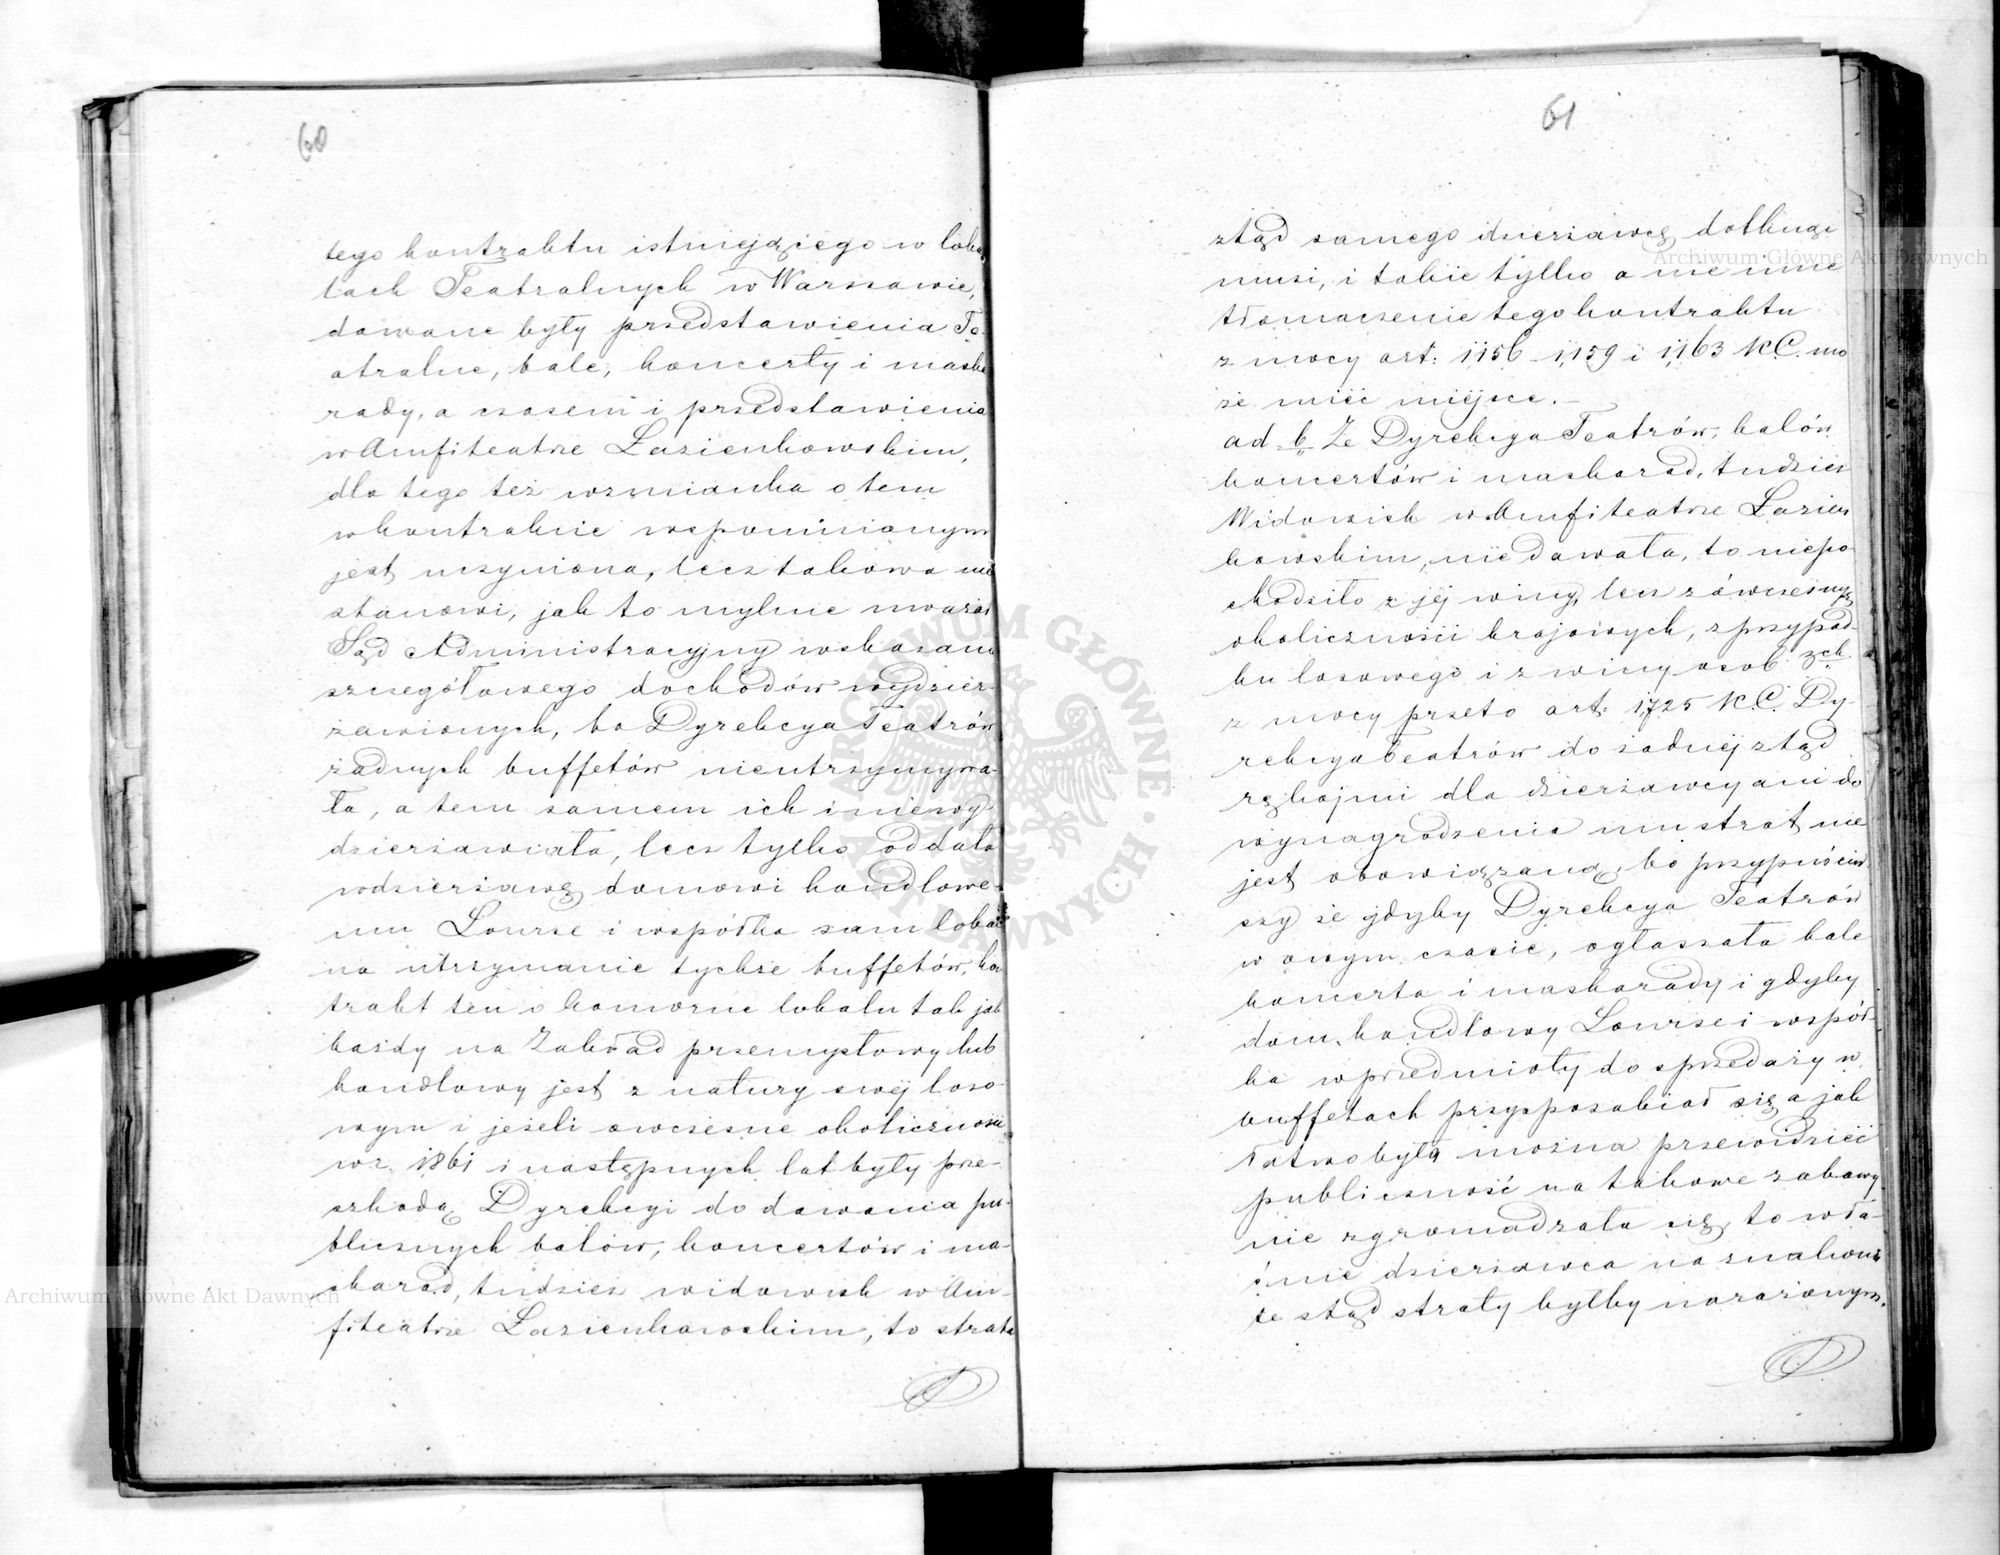 60
tego kontraktu istniejącego w loka
lach Teatralnych w Warszawie,
dawane były przedstawienia Te-
atralne, bale, koncerty i maska
rady, a czasem i przedstawienia
w Amfiteatrze Łazienkowskim,
dla tego też wzmianka o tem
w kontrakcie wspomnianym
jest uczyniona, lecz takowa nie
stanowi, jak to mylnie uważał
Sąd Administracyjny wskazani
szczegółowego dochodów wydzier-
żawionych, bo Dyrekcya Teatrów
żadnych buffetów nieutrzymywa-
ła, a tem samem ich i niewy
dzierżawiała, lecz tylko oddała
w dzierżawę domowi handlowe-
mu Lourse i wspólka sam lokal
na utrzymanie tychże buffetów, kon
trakt ten o komorne lokalu tak jak
każdy na Zakład przemysłowy lub
handlowy jest z natury swej loso-
wym i jeżeli owczesne okoliczności
w r. 1861 i następnych lat były prze-
szkodą Dyrekcyi do dawania pu-
blicznych balów, koncertów i ma-
skarad, tudzież widowisk w Am-
fiteatrze Łazienkowskim, to strata
61
ztąd samego dzierżawcę dotknąć
musi, i takie tylko a nie inne
tłomaczenie tego kontraktu
z mocy art: 1156 - 1159 i 1163 K.C. mo
że mieć miejsce. –
ad b Że Dyrekcya Teatrów, balów
koncertów i maskarad, tudzież
Widowisk w Amfiteatrze Łazien
kowskim, nie dawała, to niepo
chodziło z jej winy, lecz z ówczesnych
okoliczności krajowych, z przypad-
ku losowego i z winy osob 3ch
z mocy przeto art: 1725 K.C. Dy-
rekcya Teatrów do żadnéj ztąd
rękojmi dla dzierżawcy ani do
wynagrodzenia mu strat nie
jest obowiązaną, bo przypuściw
szy że gdyby Dyrekcya Teatrów
w owym czasie, ogłaszała bale
koncerta i maskarady i gdyby
dom handlowy Lourse i wspól-
ka w przedmioty do sprzedaży w
buffetach przysposabiał się a jak
łatwo było można przewidzieć
publiczność na takowe zabawy
nie zgromadzała się, to wła-
śnie dzierżawca na znakomi
te stąd straty byłby narażonym.
Archiwum Główne Akt Dawnych
Archiwum Główne Akt Dawnych
ARCHIWUM GŁÓWNE AKT DAWNYCH